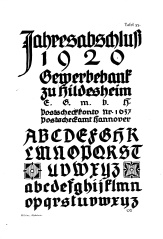 Tafel 33.
Jahresabschluß
1920
Gewerbebank
zu Hildesheim
E. G. m. b. H.
Postscheckkonto Nr. 1037
Postscheckamt Hannover
ABCDEFGHIK
LMNOPQRST
UVWXYZ
abcdefghijklmn
opqrstuvwxyz